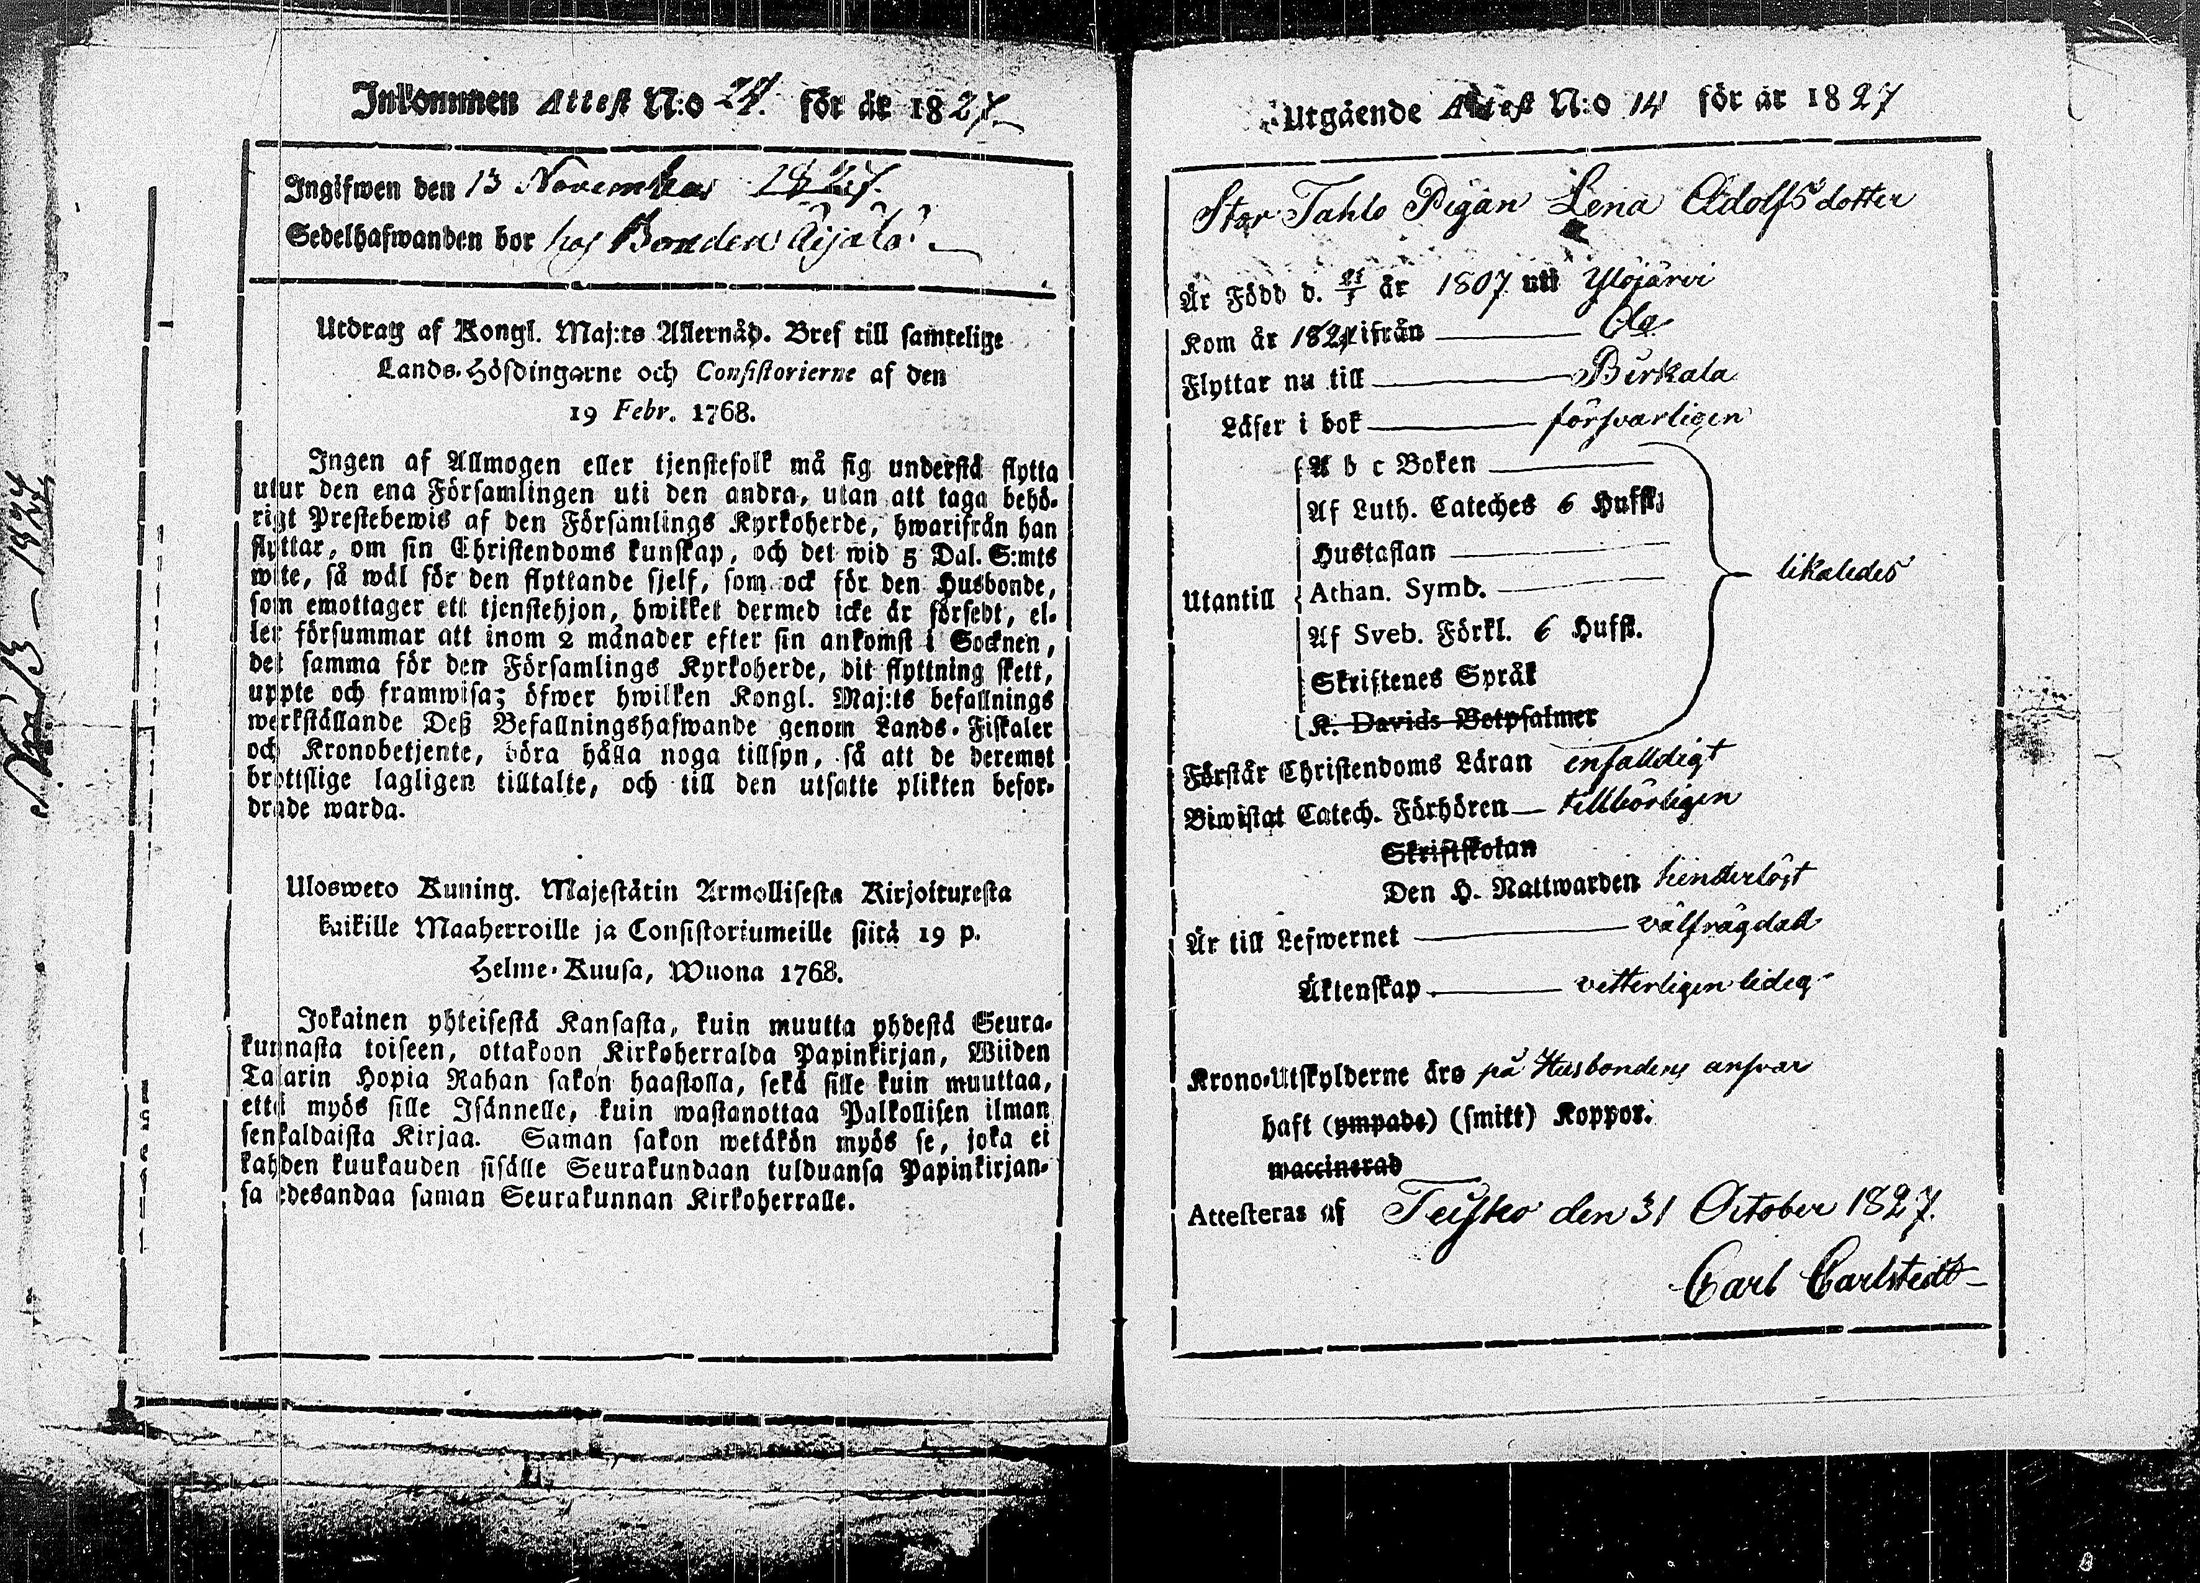 Inkommen Attest N:o 27. för år 1827.
Ingifwen den 13 November 1827.
Sedelhafwanden bor hos Bonden Äijälä.
Utdrag af Kongl. Maj:ts Allernåd. Bref till samtelige
Lands-Höfdingarne och Consistorierne af den
19 Febr. 1768.
Ingen af Allmogen eller tjenstefolk må sig understå flytta
utur den ena Församlingen uti den andra, utan att taga behö-
rigt Prestebewis af den Församlings Kyrkoherde, hwarifrån han
flyttar, om sin Christendoms kunskap, och det wid 5 Dal. S:mts
wite, så wäl för den flyttande sjelf, som ock för den Husbonde,
som emottager ett tjenstehjon, hwilket dermed icke är försedt, el-
ler försummar att inom 2 månader efter sin ankomst i Socknen,
det samma för den Församlings Kyrkoherde, dit flyttning skett,
uppte och framwisa; öfwer hwilken Kongl. Maj:ts befallnings
werkställande Deß Befallningshafwande genom Lands-Fiskaler
och Kronobetjente, böra hålla noga tillsyn, så att de deremot
brottslige lagligen tilltalte, och till den utsatte plikten befor-
drade warda.
Ulosweto Kuning. Majestätin Armollisesta Kirjoituxesta
kaikille Maaherroille ja Consistoriumeille siitä 19 p.
Helme-Kuusa, Wuona 1768.
Jokainen yhteisestä Kansasta, kuin muutta yhdestä Seura-
kunnasta toiseen, ottakoon Kirkoherralda Papinkirjan, Wiiden
Talarin Hopia Rahan sakon haastolla, sekä sille kuin muuttaa,
että myös sille Isännelle, kuin wastanottaa Palkollisen ilman
senkaldaista Kirjaa. Saman sakon wetäkön myös se, joka ei
kahden kuukauden sisälle Seurakundaan tulduansa Papinkirjan-
sa edesandaa saman Seurakunnan Kirkoherralle.
Utgående Attest N:o 14 för år 1827
Stor Tahlo Pigan Lena Adolfsdotter
Är Född d. 25/5 år 1807 uti Ylöjärvi
Kom år 182 ifrån
Flyttar nu till Birkala
Läser i bok försvarligen
A b c Boken
Af Luth. Cateches 6 Hufst.
Hustaflan
Utantill Athan. Symb. likaledes
Af Sveb. Förkl. 6 Hufst.
Skriftenes Språk
K. Davids Botpsalmer
Förstår Christendoms Läran enfalldigt
Biwistat Catech. Förhören tillbörligen
Skriftskolan
Den H. Nattwarden hinderlöst
Är till Lefwernet välfrägdad
Äktenskap vetterligen ledig
Krono-Utskylderne äro på Husbondens ansvar
haft (ympade) (smitt) Koppor.
waccinerad
Attesteras af Teisko den 31 October 1827.
Carl Carlstedt